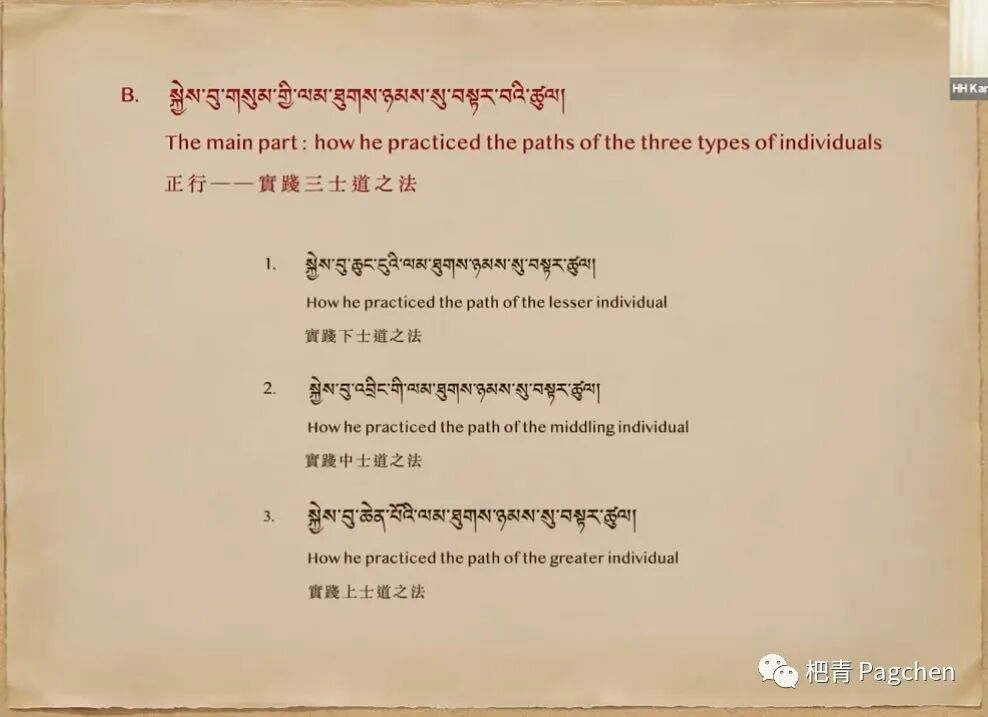 HH Kar
B. སྐྱེས་བུ་གསུམ་གྱི་ལམ་ཐུགས་ཉམས་སུ་བསྟར་བའི་ཚུལ།
The main part : how he practiced the paths of the three types of individuals
正行——實踐三士道之法
1. སྐྱེས་བུ་ཆུང་ངུའི་ལམ་ཐུགས་ཉམས་སུ་བསྟར་ཚུལ།
How he practiced the path of the lesser individual
實踐下士道之法
2. སྐྱེས་བུ་འབྲིང་གི་ལམ་ཐུགས་ཉམས་སུ་བསྟར་ཚུལ།
How he practiced the path of the middling individual
實踐中士道之法
3. སྐྱེས་བུ་ཆེན་པོའི་ལམ་ཐུགས་ཉམས་སུ་བསྟར་ཚུལ།
How he practiced the path of the greater individual
實踐上士道之法
杷青 Pagchen